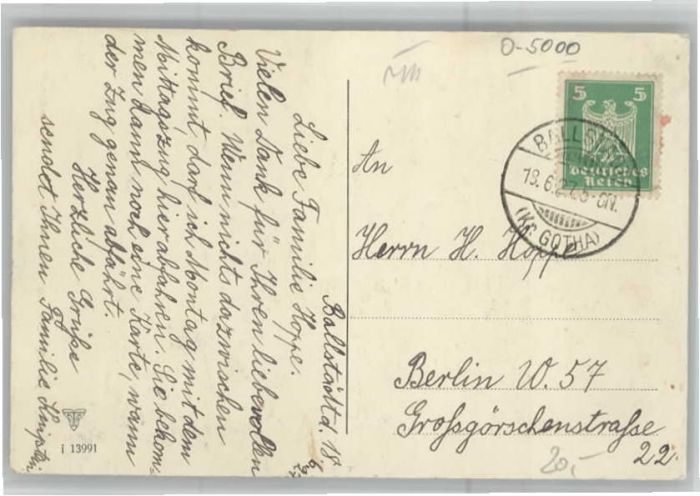 Ballstädt d. 18.
6.
27
Liebe Familie Hoppe.
Vielen Dank für Ihren liebevollen
Brief. Wenn nichts dazwischen
kommt, das ich Montag mit dem
Mittagszug hier abfahren. Sie bekom-
men dann noch eine Karte, wann
der Zug genau abfährt.
Herzliche Grüße
sendet Ihnen Familie
I 13991
O-5000
5 5
Deutsches
Reich
BALLSTÄDT
18.6.27. 8-9N.
(KR. GOTHA)
An
Herrn H. Hoppe
Berlin W. 57
Grossgörschenstrasse
22.
20,-